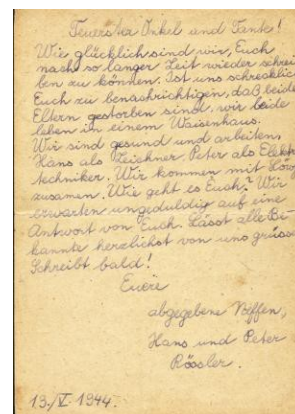 Teuerster Onkel und Tante!
Wie glücklich sind wir, Euch
nach so langer Zeit wieder schrei
ben zu können. Ist uns schrecklich
Euch zu benachrichtigen, daß beide
Eltern gestorben sind, wir beide
leben in einem Waisenhaus.
Wir sind gesund und arbeiten,
Hans als Zeichner Peter als Elektro
techniker. Wir kommen mit Löw
zusamen. Wie geht es Euch? Wir
erwarten ungeduldig auf eine
Antwort von Euch. Lässt alle Be-
kannte herzlichst von uns grüssen
Schreibt bald!
Euere
abgegebene Neffen,
Hans und Peter
Rössler.
13./V. 1944.